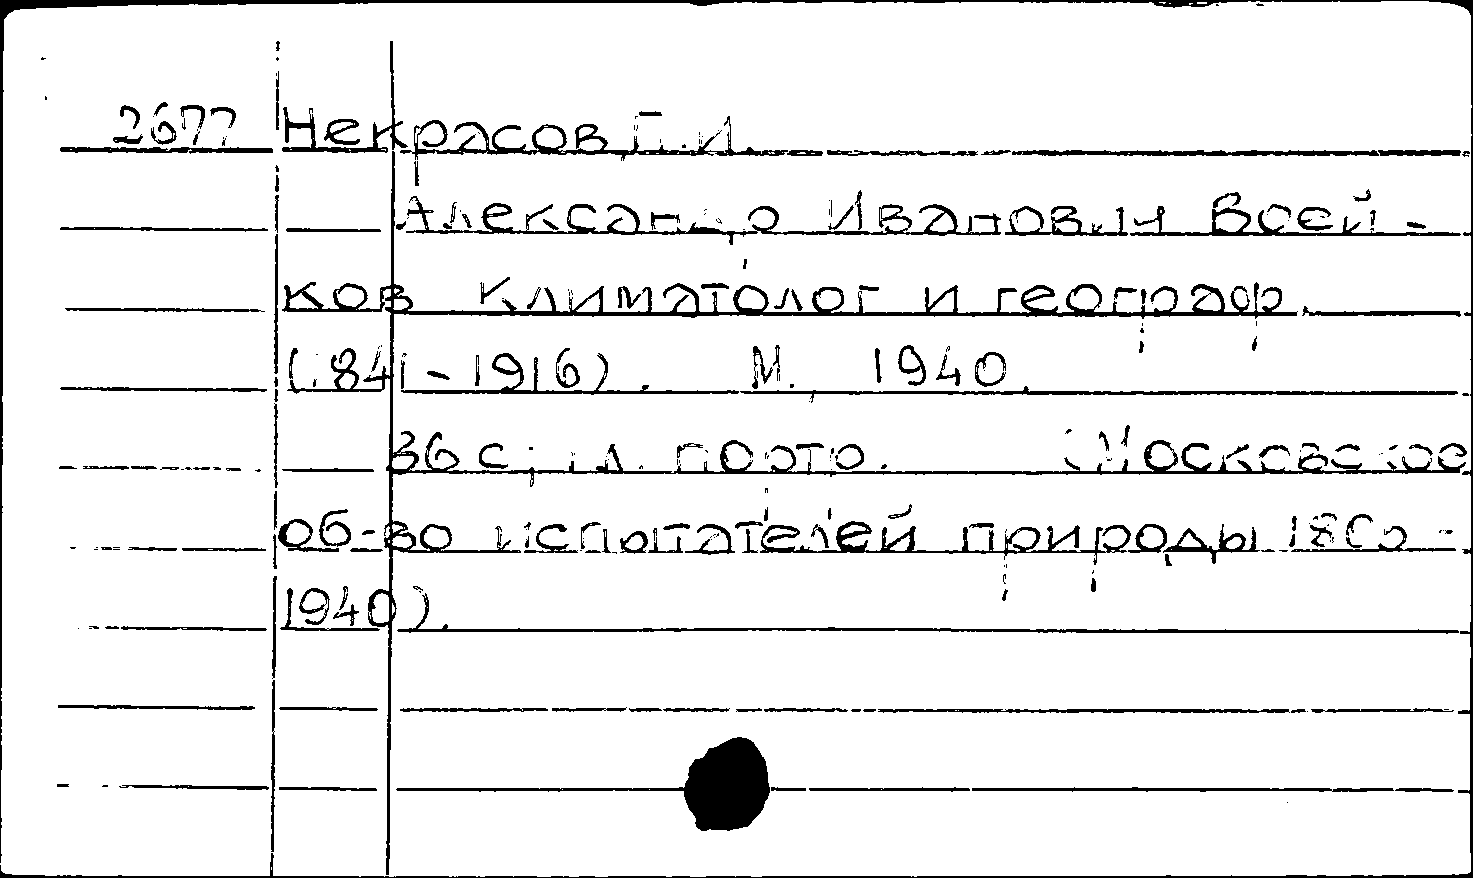 2677 Некрасов, П.И.
Александр Иванович Воей-
ков Климатолог и географ.
(1841-1916). М., 1940.
36 с; 1 л. портр. (Московское
об-во испытателей природы 1805-
1940).